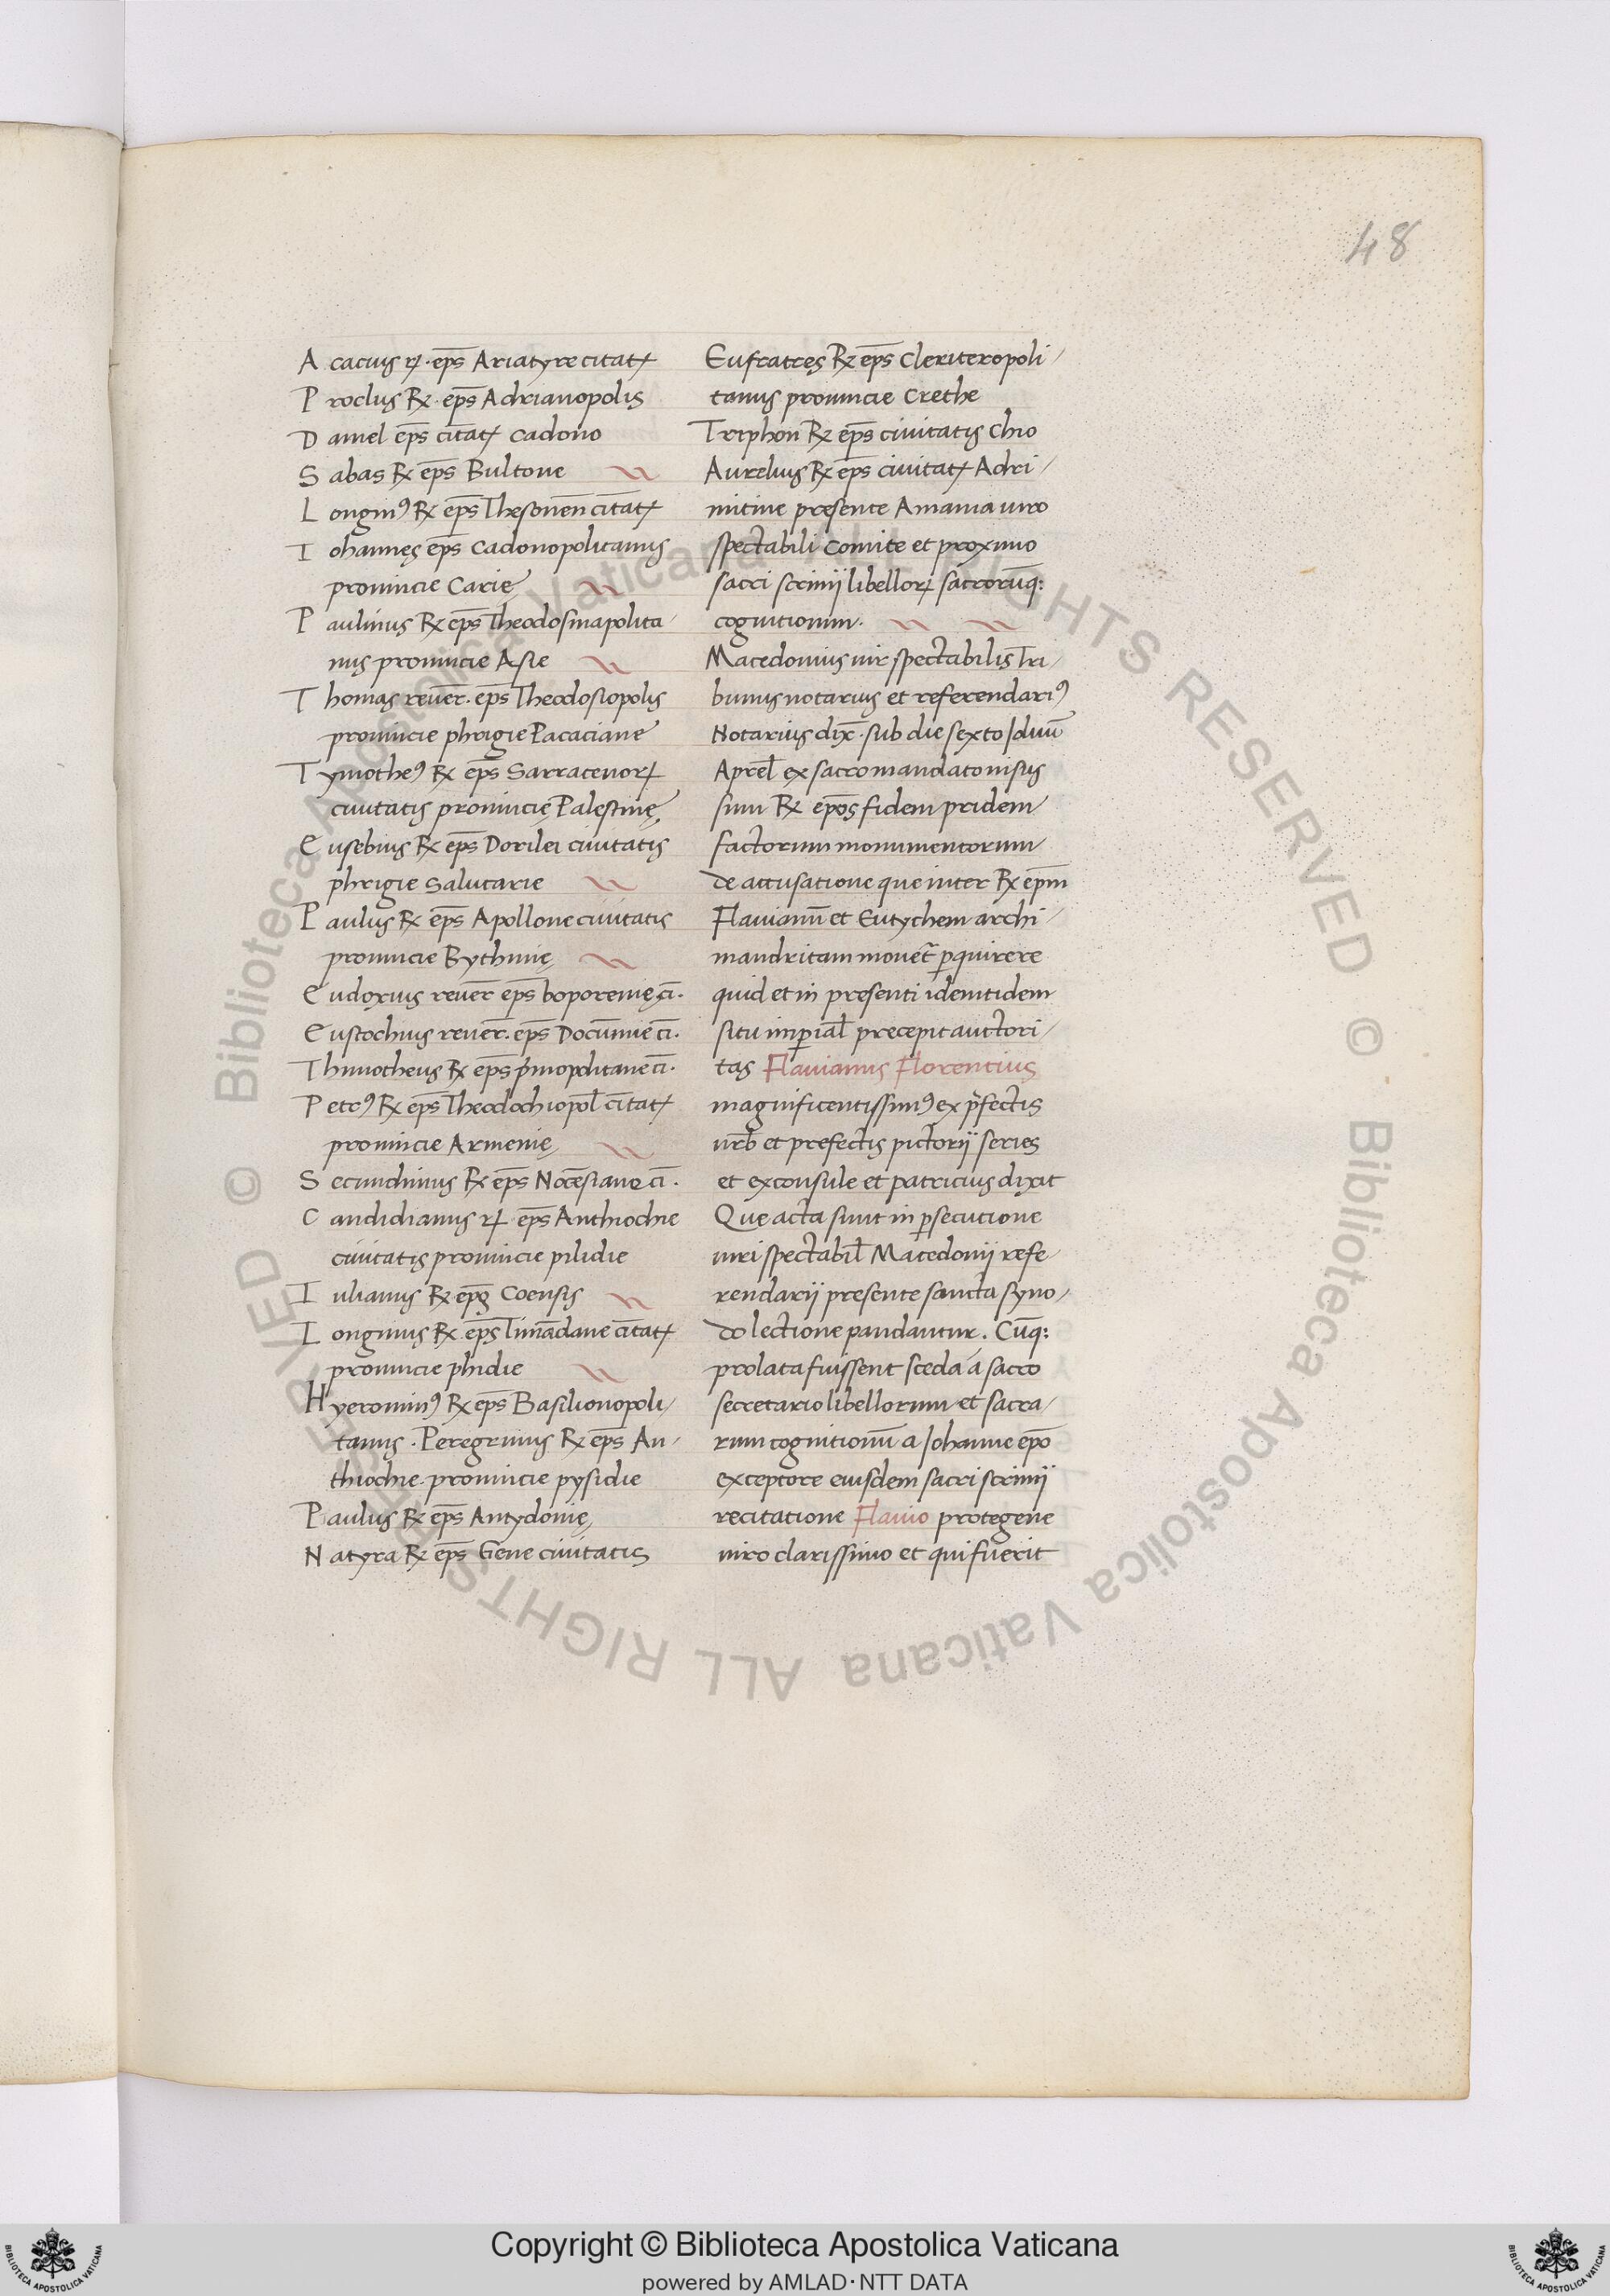 48
Acacius rꝝ. ep̄s Ariatyre citatꝝ
Proclus R̷. ep̄s Adrianopolis
Daniel ep̄s citatꝝ Cadono
Sabas R̷ ep̄s Bultone
Longinꝰ R̷ ep̄s Thesonen̄ citatꝝ
Iohannes ep̄s Cadonopolitanus
prouincie Carie
Paulinus R̷ ep̄s Theodosinapolita/
nus prouincie Asie
Thomas reuer̄. ep̄s Theodosiopolis
prouincie phrigie Pacaciane
Tymotheꝰ R̷ ep̄s Sarracenorꝝ
ciuitatis prouincię Palestinę
Eusebius R̷ ep̄s Dorilei ciuitatis
phrigie Salutarie
Paulus R̷ ep̄s Apollone ciuitatis
prouincie Bythinię
Eudoxius reuer̄ ep̄s boporenie ci̅.
Eustochius reuer̄. ep̄s Documie ci̅.
Thimotheus R̷ ep̄s p̄mopolitane ci̅.
Petrꝰ R̷ ep̄s Theodochiopol̄ citatꝝ
prouincie Armenię
Secundinus R̷ ep̄s Nocēsiane ci̅.
Candidianus rꝝ. ep̄s Anthiochie
ciuitatis prouincie pilidie
Iulianus R̷ ep̄s Coensis
Longinus R̷ ep̄s Timādane citatꝝ
prouincie phidie
Hyerominꝰ R̷ ep̄s Basilionopoli/
tanus. Peregrinus R̷ ep̄s An/
thiochie. prouincie pysidie
Paulus R̷ ep̄s Antydonię
Natyra R̷ ep̄s Gene ciuitatis
Eufratres R̷ ep̄s Cleriteropoli/
tanus prouincie Crethe
Triphon R̷ ep̄s ciuitatis Chio
Aurelius R̷ ep̄s ciuitatꝝ Adri/
mitine presente Amania uiro
spectabili Comite et proximo
sacri scrinij libellorꝝ sacrorūq:
cognitionum.
Macedonius uir spectabilis Tri/
bunus notarius et referendariꝰ
Notarius dix̄. sub die sexto Iduū
Aprel̄ ex sacro mandato nisus
sum R̷ ep̄os fidem pridem
factorum monumentorum
de accusatione que inter R̷ ep̄m
Flauianū et Eutychem archi/
mandritam mouet̄ ꝑquirere
quid et in presenti idemtidem
situ imꝑial̄ precepit auctori/
tas Flauianus Florentius
magnificentissimꝰ ex p̄fectis
urb̄ et prefectis pictorij series
et exconsule et patricius dixit
Que acta sunt in ꝑsecutione
uiri spectabil̄ Macedonij refe/
rendarij presente sancta syno/
do lectione pandantur. Cūq:
prolata fuissent sceda a sacro
secretario libellorum et sacra/
rum cognitionū a Iohanne ep̄o
exceptore eiusdem sacri scrinij
recitatione Flauio protegene
uiro clarissimo et qui fuerit
© Biblioteca Apostolica Vaticana ALL RIGHTS RESERVED © Biblioteca Apostolica Vaticana ALL RIGHTS RESERVED
Copyright © Biblioteca Apostolica Vaticana
powered by AMLAD·NTT DATA
BIBLIOTECA APOSTOLICA VATICANA
BIBLIOTECA APOSTOLICA VATICANA